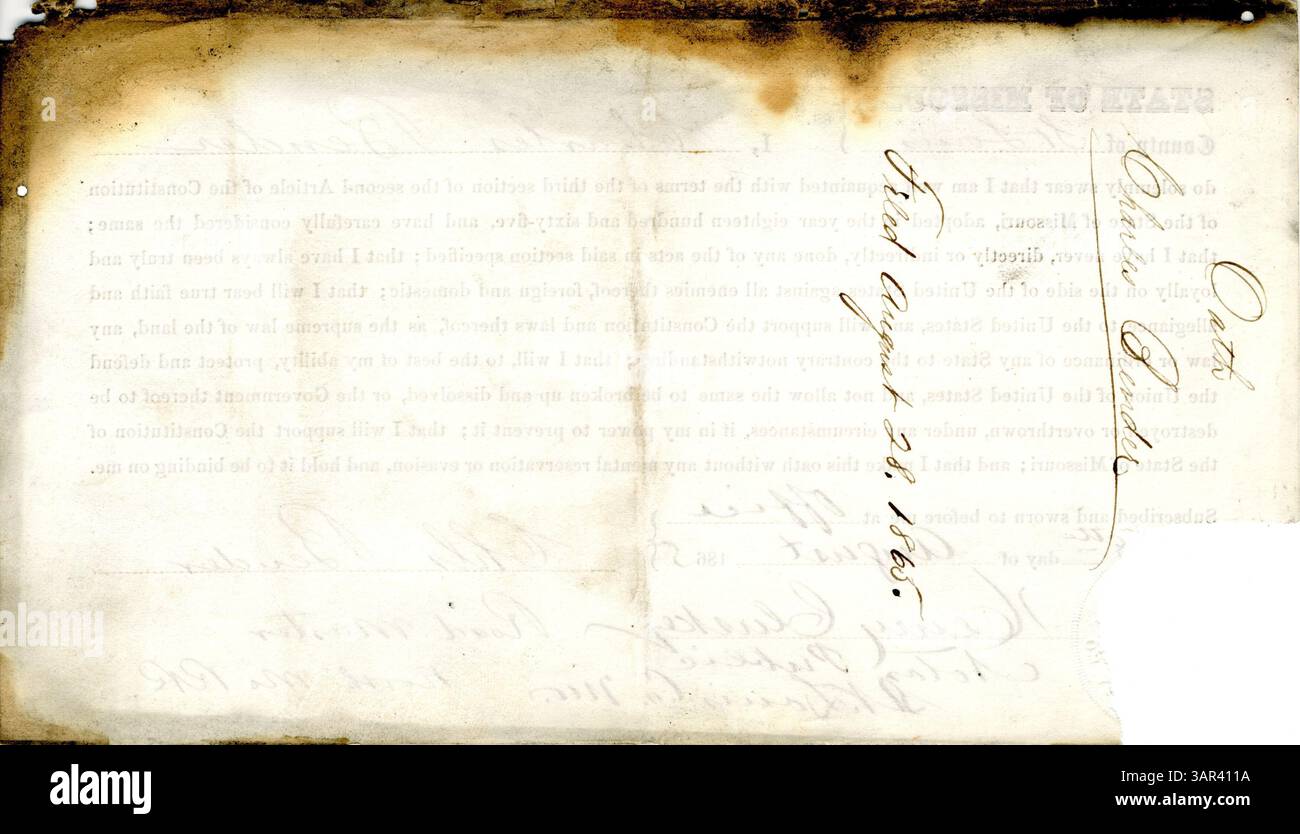 Oath
Charles Bender
Filed August 28. 1865.
STATE OF MISSOU
County of St Louis } ss. I, Charles Bender
do solemnly swear that I am well acquainted with the terms of the third section of the second Article of the Constitution
of the State of Missouri, adopted in the year eighteen hundred and sixty-five, and have carefully considered the same;
that I have never, directly or indirectly, done any of the acts in said section specified; that I have always been truly and
loyally on the side of the United States against all enemies thereof, foreign and domestic; that I will bear true faith and
allegiance to the United States, and will support the Constitution and laws thereof, as the supreme law of the land, any
law or ordinance of any State to the contrary notwithstanding; that I will, to the best of my ability, protect and defend
the Union of the United States, and not allow the same to be broken up and dissolved, or the Government thereof to be
destroyed or overthrown, under any circumstances, if in my power to prevent it; that I will support the Constitution of
the State of Missouri; and that I make this oath without any mental reservation or evasion, and hold it to be binding on me.
Subscribed and sworn to before me at Office
day of August 1865 } Bender
Henry Road Master
Notary Public North Mo RR
St Louis Co Mo.
alamy
Image ID: 3AR411A
www.alamy.com